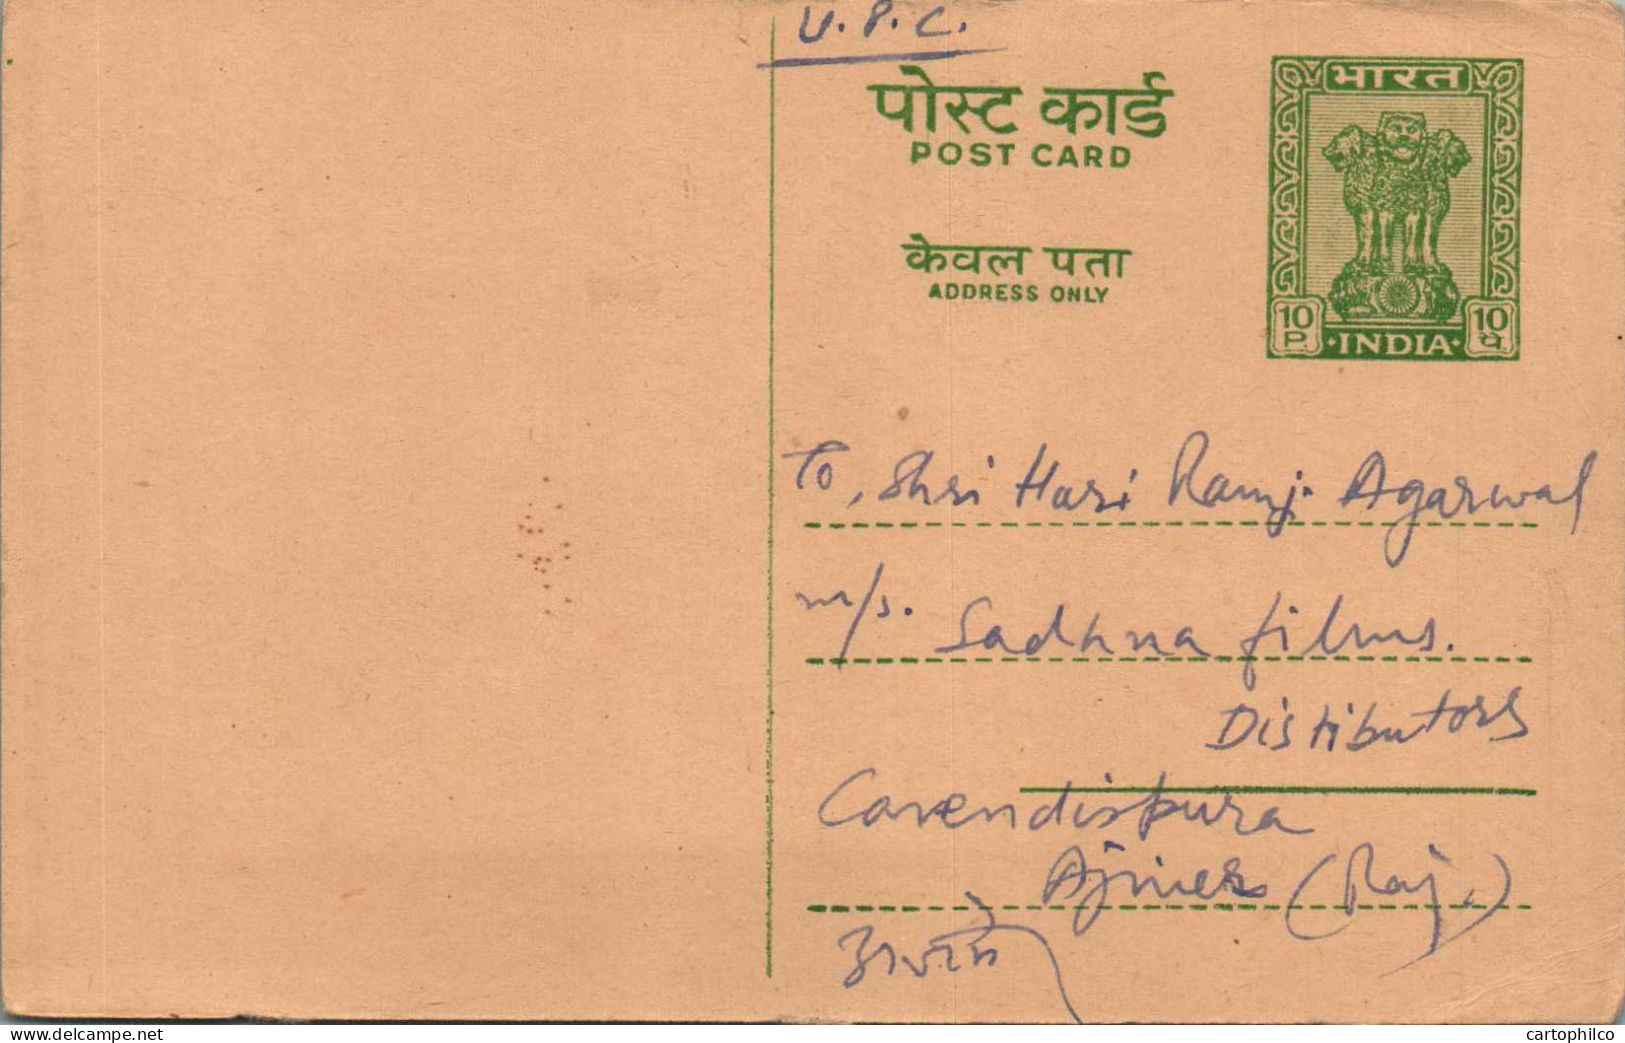 U.P.C.
पोस्ट कार्ड
POST CARD
केवल पता
ADDRESS ONLY
भारत
10 P.
10 पै.
·INDIA·
To, Shri Hari Ramji Agarwal
M/s. Sadhna films.
Distibutors
Cavendispura
Ajmer (Raj.)
अजमेर
Website : picture store
cartophilco